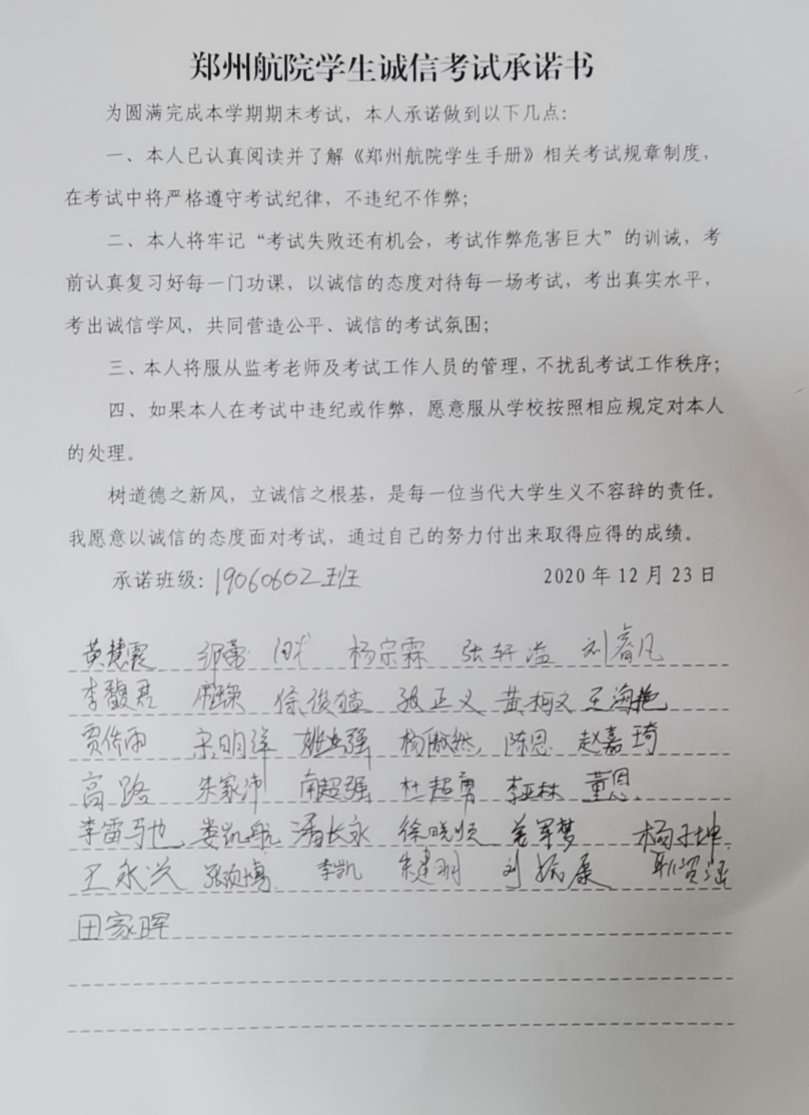 郑州航院学生诚信考试承诺书
为圆满完成本学期期末考试，本人承诺做到以下几点：
一、本人已认真阅读并了解《郑州航院学生手册》相关考试规章制度，
在考试中将严格遵守考试纪律，不违纪不作弊；
二、本人将牢记“考试失败还有机会，考试作弊危害巨大”的训诫，考
前认真复习好每一门功课，以诚信的态度对待每一场考试，考出真实水平，
考出诚信学风，共同营造公平、诚信的考试氛围；
三、本人将服从监考老师及考试工作人员的管理，不扰乱考试工作秩序；
四、如果本人在考试中违纪或作弊，愿意服从学校按照相应规定对本人
的处理。
树道德之新风，立诚信之根基，是每一位当代大学生义不容辞的责任。
我愿意以诚信的态度面对考试，通过自己的努力付出来取得应得的成绩。
承诺班级：19060602班 2020年12月23日
黄慧霞 杨宗霖 张轩溢 刘睿凡
李馥君 张正义 黄柯文 王海艳
宋明洋 姚其强 杨傲然 陈恩 赵嘉琦
高路 朱家沛 南超强 杜超勇 李亚林 董恩
李雷驰 娄凯航 潘长永 徐晓顺 姜军梦 杨子坤
王永兴 李凯 朱建羽 刘振康
田家晖